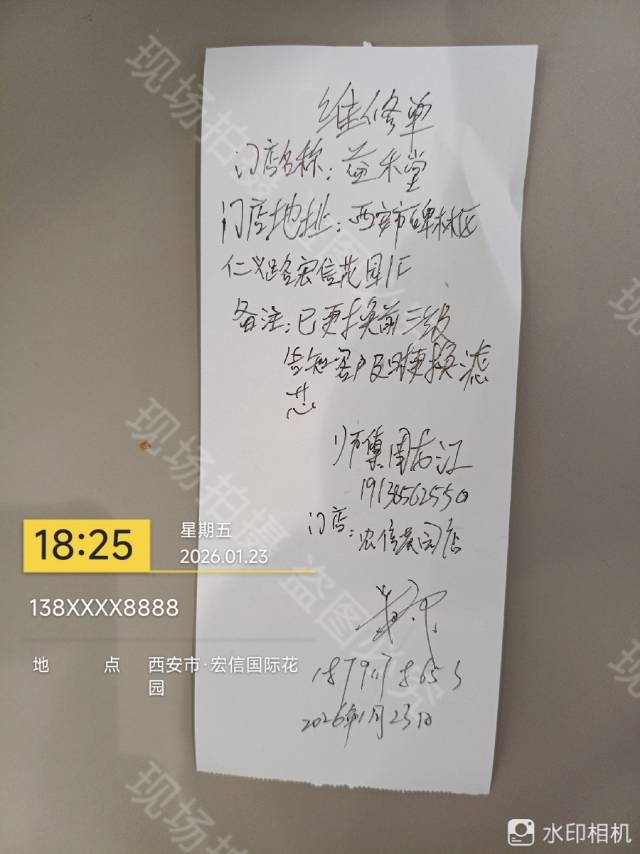 维修单
门店名称：益禾堂
门店地址：西安市碑林区
仁义路宏信花园1F
备注：已更换前三级
告知客户及时更换滤
芯
师集团
19138562550
门店：宏信花园店
2026年1月23日
18:25
星期五
2026.01.23
138XXXX8888
地 点 西安市·宏信国际花
园
水印相机
现场拍摄 盗图必究